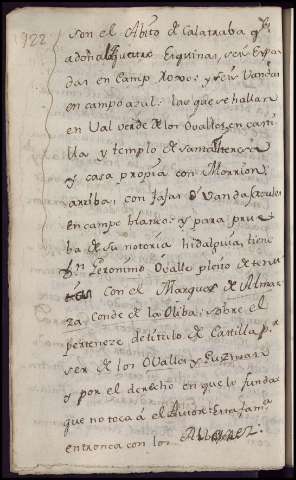 1922
son el Abito de Calatraba q.e
adorna quatro Esquinas, seis Espa-
das en Campo Roxo: y seis Vandas
en campo azul: las que se hallan
en Val verde de los Ovalles, en casti-
lla y templo de santa Theresa
y casa propia con Morrion,
arriba; con fajas o Vandas azules
en campo blanco: y para prue-
ba de su notoria hidalguia, tiene
Dn Geronimo Ovalle pleito de tenu-
con el Marques de Almar-
za Conde de la Oliba; sobre el
perteneze de titulo de Castilla p.r
ser de los Ovalles y Guzman
y por el derecho en que lo funda
que no toca á el Autor: Esta fam.a
entronca con los Alvarez.